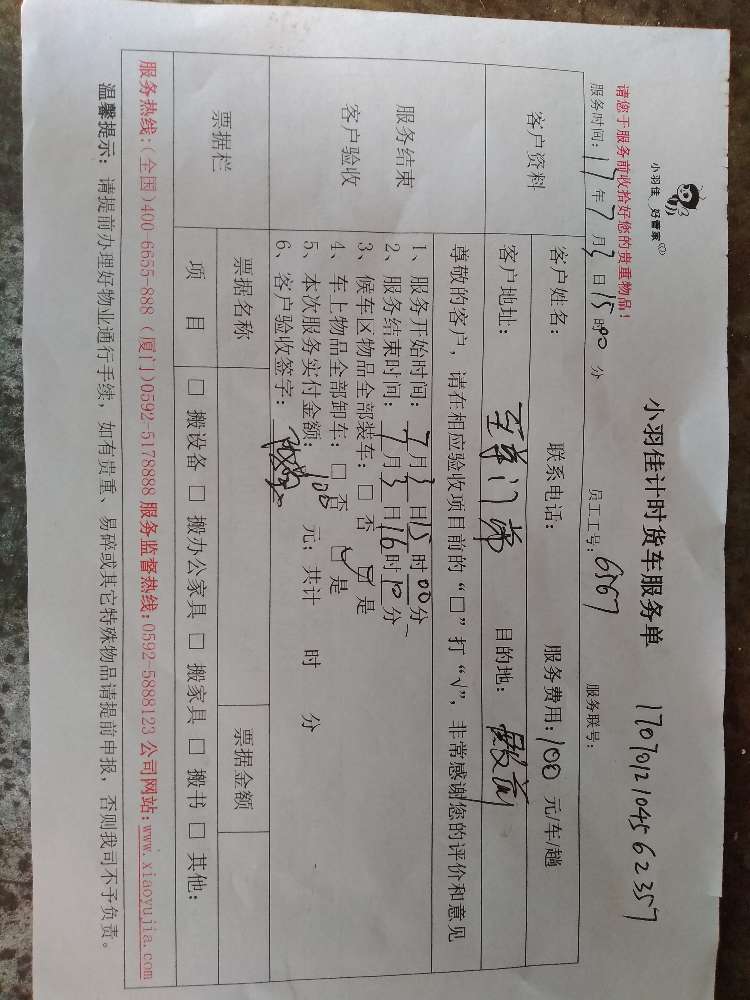 小羽佳 好管家
小羽佳计时货车服务单
请您于服务前收拾好您的贵重物品!
17070121104562357
服务时间: 17 年 7 月 3 日 15 时 00 分 员工工号: 6567 服务联号:
客户资料
客户姓名: 联系电话: 服务费用: 100 元/车/趟
客户地址: 目的地: 殿前
服务结束
客户验收
尊敬的客户, 请在相应验收项目前的“□”打“√”, 非常感谢您的评价和意见
1、服务开始时间: 7 月 3 日 15 时 00 分
2、服务结束时间: 7 月 3 日 16 时 10 分
3、候车区物品全部装车: □ 否 ☑ 是
4、车上物品全部卸车: □ 否 ☑ 是
5、本次服务实付金额: 100 元; 共计 时 分
6、客户验收签字:
票据栏
票据名称 票据金额
项 目 □ 搬设备 □ 搬办公家具 □ 搬家具 □ 搬书 □ 其他:
服务热线:(全国)400-6655-888 (厦门)0592-5178888 服务监督热线:0592-5888123 公司网站:www.xiaoyujia.com
温馨提示: 请提前办理好物业通行手续, 如有贵重、易碎或其它特殊物品请提前申报, 否则我司不予负责。